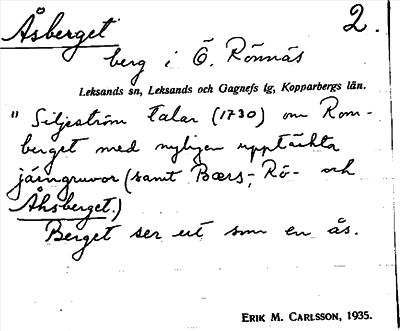 Åsberget 2.
berg i Ö. Rönnäs
Leksands sn, Leksands och Gagnefs tg, Kopparbergs län.
" Siljeström talar (1730) om Rom-
berget med nyligen upptäckta
järngruvor (samt Bærs-, Rö- och
Åhsberget.)
Berget ser ut som en ås.
ERIK M. CARLSSON, 1935.